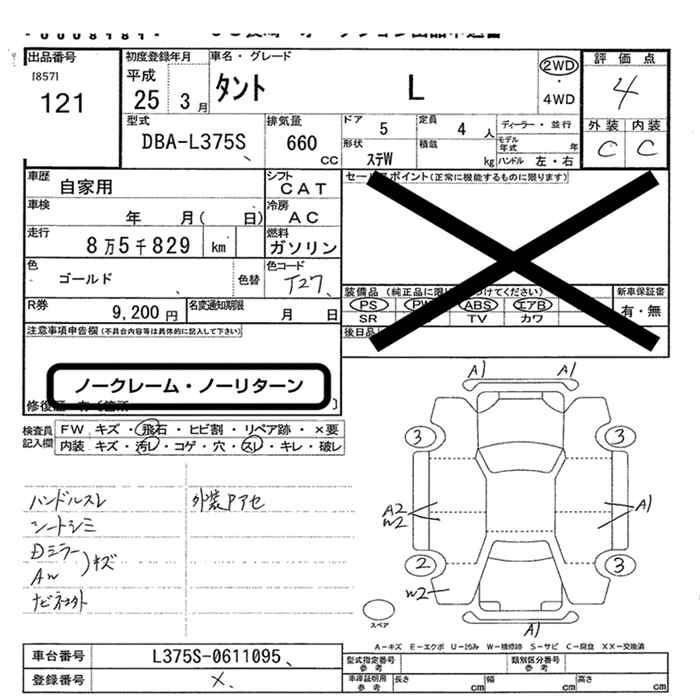 出品番号
[857]
121
初度登録年月
平成
25 3月
車名・グレード
タント L
2WD
・
4WD
評価点
4
外装 内装
C C
型式
DBA-L375S
排気量
660
CC
ドア 5
定員 4 人
ディーラー・並行
モデル年式 年
形状 ステW
積載 kg
ハンドル 左・右
車歴
自家用
シフト
CAT
セールスポイント(正常に機能するものに限ります)
車検
年 月( 日)
冷房
AC
走行
8万5千829 km
燃料
ガソリン
色
ゴールド
色替
色コード
T27
R券
9,200円
名変通知期限
月 日
装備品(純正品に限り つけてください)
PS PW ABS エアB
SR TV カワ
新車保証書
有・無
後日品
注意事項申告欄(不具合内容等は具体的に記入して下さい)
ノークレーム・ノーリターン
修復歴
検査員記入欄
FW キズ・飛石・ヒビ割・リペア跡・×要
内装 キズ・汚レ・コゲ・穴・スレ・キレ・破レ
ハンドルスレ 外装Pアセ
シートシミ
Dミラー
AW )キズ
ナビネヨト
A1 A1
3 3
A2 A1
W2
2 3
W2
A1
スペア
A-キズ E-エクボ U-凹み W-補修跡 S-サビ C-腐食 XX-交換済
車台番号
L375S-0611095
型式指定番号
参考
類別区分番号
参考
登録番号
×
車庫証明用
参考
長さ cm 幅 cm 高さ cm